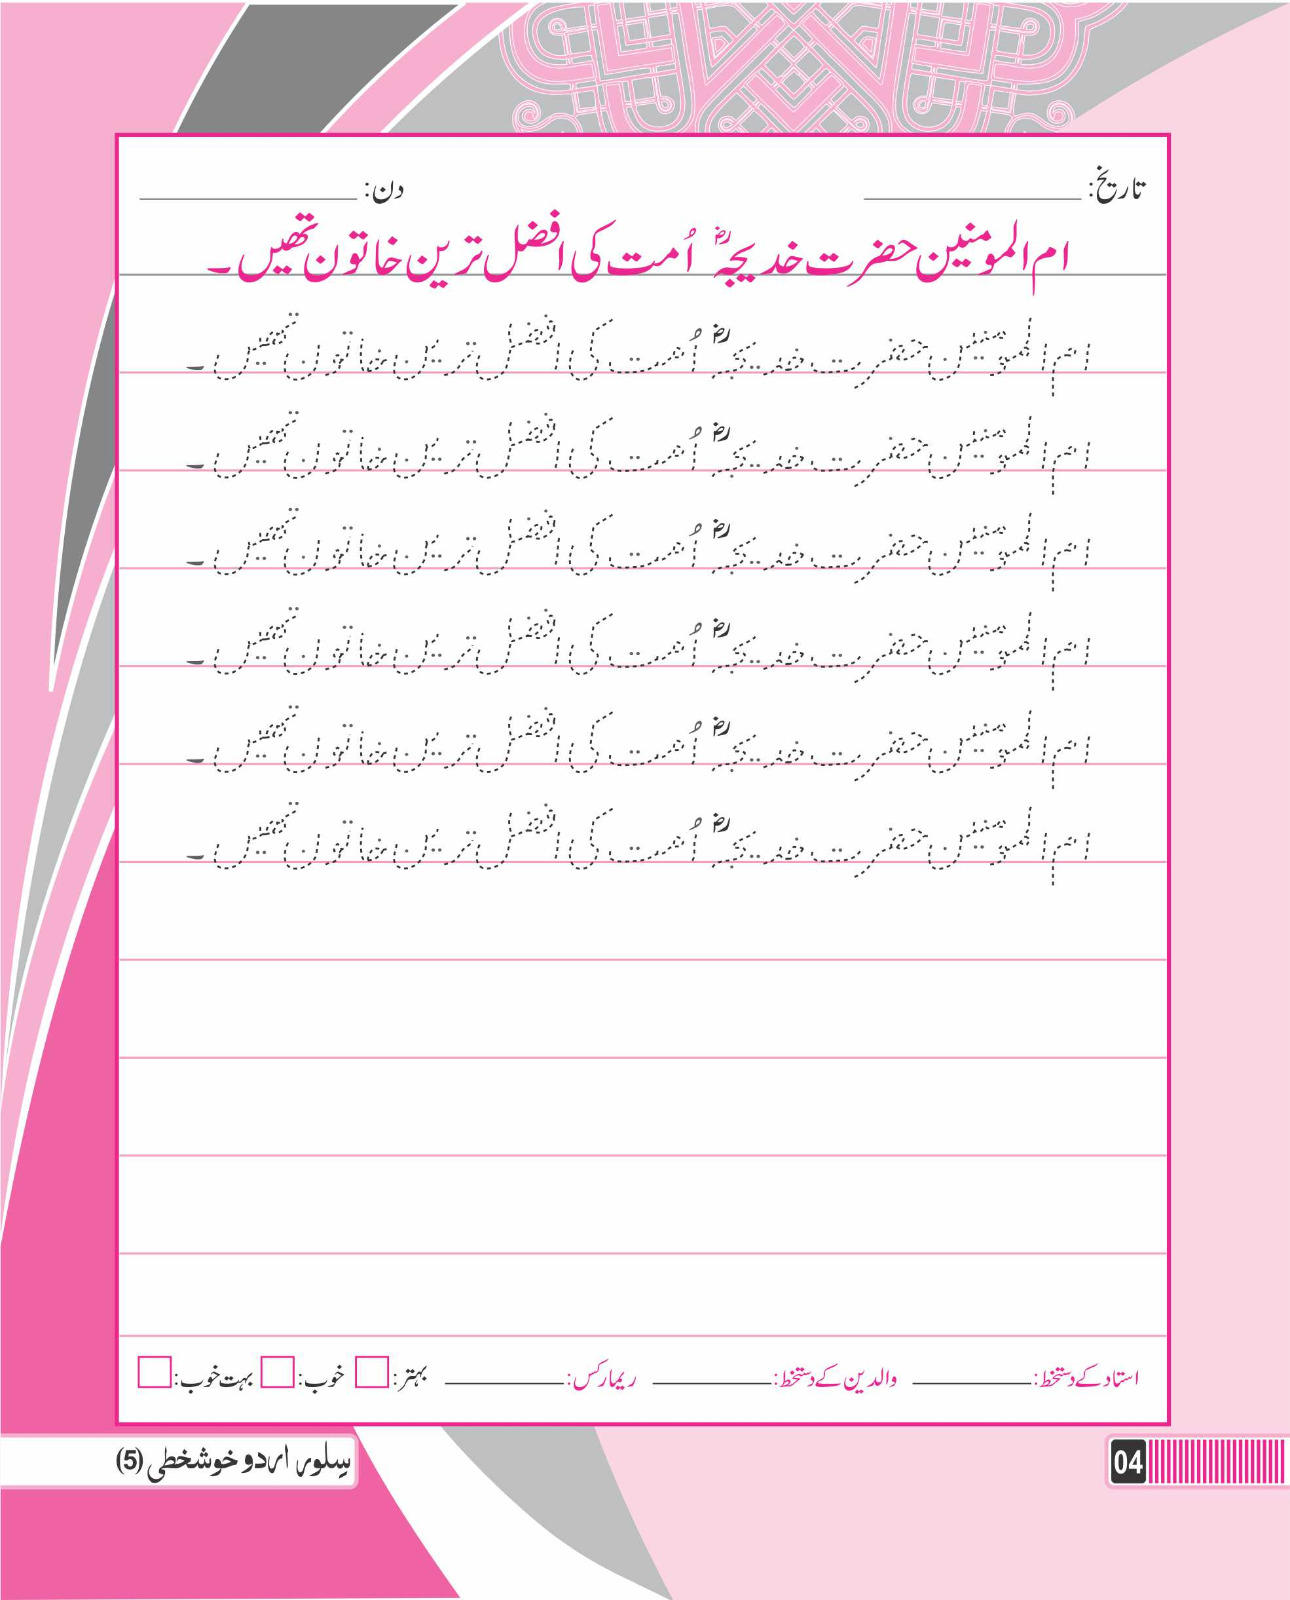 تاریخ: ____________ دن: ____________
ام المومنین حضرت خدیجہؓ اُمت کی افضل ترین خاتون تھیں۔
ام المومنین حضرت خدیجہؓ اُمت کی افضل ترین خاتون تھیں۔
ام المومنین حضرت خدیجہؓ اُمت کی افضل ترین خاتون تھیں۔
ام المومنین حضرت خدیجہؓ اُمت کی افضل ترین خاتون تھیں۔
ام المومنین حضرت خدیجہؓ اُمت کی افضل ترین خاتون تھیں۔
ام المومنین حضرت خدیجہؓ اُمت کی افضل ترین خاتون تھیں۔
ام المومنین حضرت خدیجہؓ اُمت کی افضل ترین خاتون تھیں۔
استاد کے دستخط: ________ والدین کے دستخط: ________ ریمارکس: ________ بہتر: خوب: بہت خوب:
04
سِلور اردو خوشخطی (5)